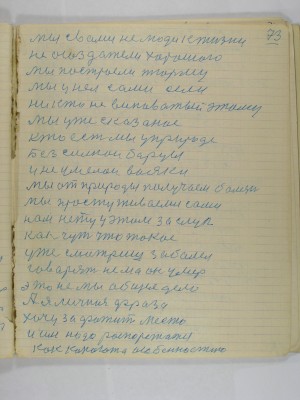 73
мы с вами не люди к жизни
не создатели хорошого
мы построели тюрьму
мы у неи сами сели
ни кто не виноватый этому
мы уже сказаное
кто ест мы у природе
без силнои барцы
и не умелои вояки
мы от природы получаем болезн
мы простуживаемся сами
нам нету у этом заслук
как чут что такое
уже смотриш заболел
говорят нема он умер
это не мы а общее дело
А я личная фраза
хочу за фотит место
и им надо распоряжатся
как какоето особенностию